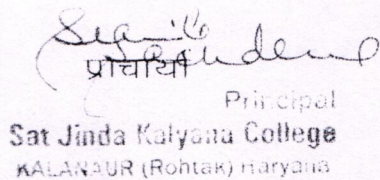 प्राचार्या
Principal
Sat Jinda Kalyana College
KALANAUR (Rohtak) Haryana